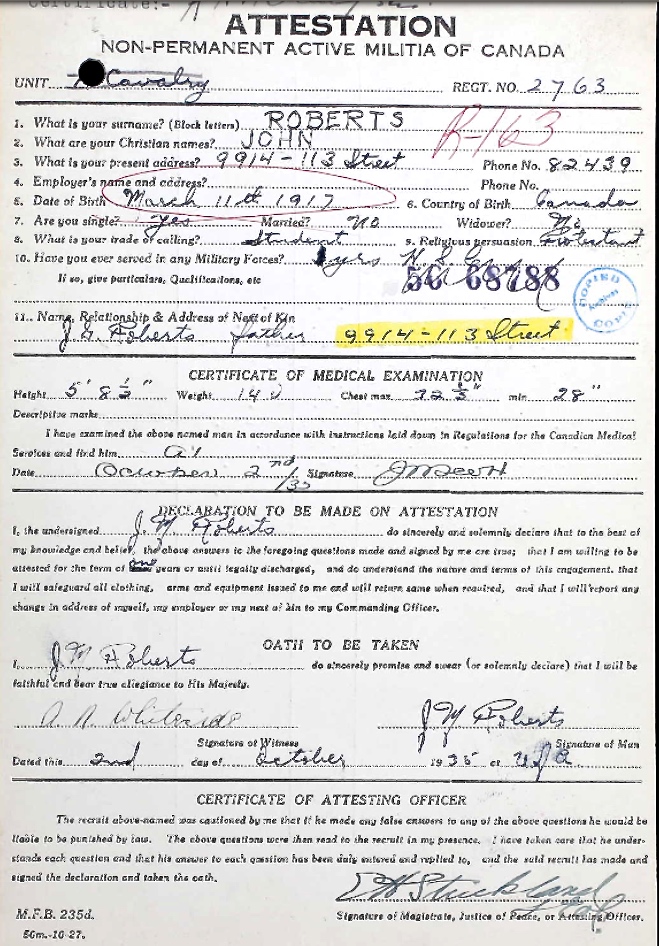 ATTESTATION
NON-PERMANENT ACTIVE MILITIA OF CANADA
UNIT Cavalry REGT. NO. 2763
R-163
1. What is your surname? (Block letters) ROBERTS
2. What are your Christian names? JOHN
3. What is your present address? 9914-113 Street Phone No. 82439
4. Employer's name and address? Phone No.
5. Date of Birth March 11th 1917 6. Country of Birth Canada
7. Are you single? Yes Married? No Widower? No
8. What is your trade of calling? Student 9. Religious persuasion Protestant
10. Have you ever served in any Military Forces? yrs
If so, give particulars, Qualifications, etc 56 68788
COPIED
COPIE
11.. Name, Relationship & Address of Next of Kin
J. G. Roberts father 9914-113 Street
CERTIFICATE OF MEDICAL EXAMINATION
Height 5' 8 ½" Weight 140 Chest max 32 ½" min 28"
Descriptive marks
I have examined the above named man in accordance with instructions laid down in Regulations for the Canadian Medical
Services and find him A1
Date October 2nd/35 Signature J Scott
DECLARATION TO BE MADE ON ATTESTATION
I, the undersigned J. M. Roberts do sincerely and solemnly declare that to the best of
my knowledge and belief, the above answers to the foregoing questions made and signed by me are true; that I am willing to be
attested for the term of one years or until legally discharged, and do understand the nature and terms of this engagement. that
I will safeguard all clothing, arms and equipment issued to me and will return same when required, and that I will report any
change in address of myself, my employer or my next of kin to my Commanding Officer.
OATH TO BE TAKEN
I, J. M. Roberts do sincerely promise and swear (or solemnly declare) that I will be
faithful and bear true allegiance to His Majesty.
J M Roberts
Signature of Witness Signature of Man
Dated this 2nd day of October 1935 at U of A
CERTIFICATE OF ATTESTING OFFICER
The recruit above-named was cautioned by me that if he made any false answers to any of the above questions he would be
liable to be punished by law. The above questions were then read to the recruit in my presence. I have taken care that he under-
stands each question and that his answer to each question has been duly entered and replied to, and the said recruit has made and
signed the declaration and taken the oath.
Strickland
M.F.B. 235d. Signature of Magistrate, Justice of Peace, or Attesting Officer.
50m.-10-27.